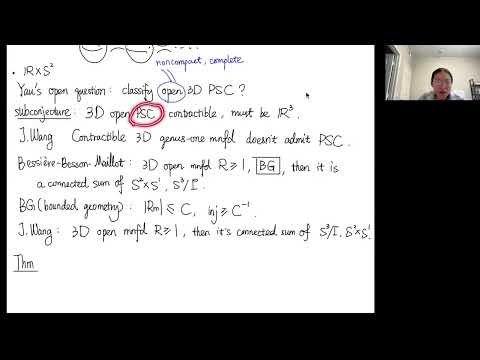 noncompact, complete
• ℝ×S²
Yau's open question: classify open 3D PSC?
subconjecture: 3D open PSC contractible, must be ℝ³.
J.Wang Contractible 3D genus-one mnfd doesn't admit PSC.
Bessière-Besson-Maillot: 3D open mnfd R≥1, BG, then it is
a connected sum of S²×S¹, S³/Γ.
BG (bounded geometry): |Rm|≤C, inj≥C⁻¹.
J.Wang: 3D open mnfd R≥1, then it's connected sum of S³/Γ, S²×S¹.
Thm